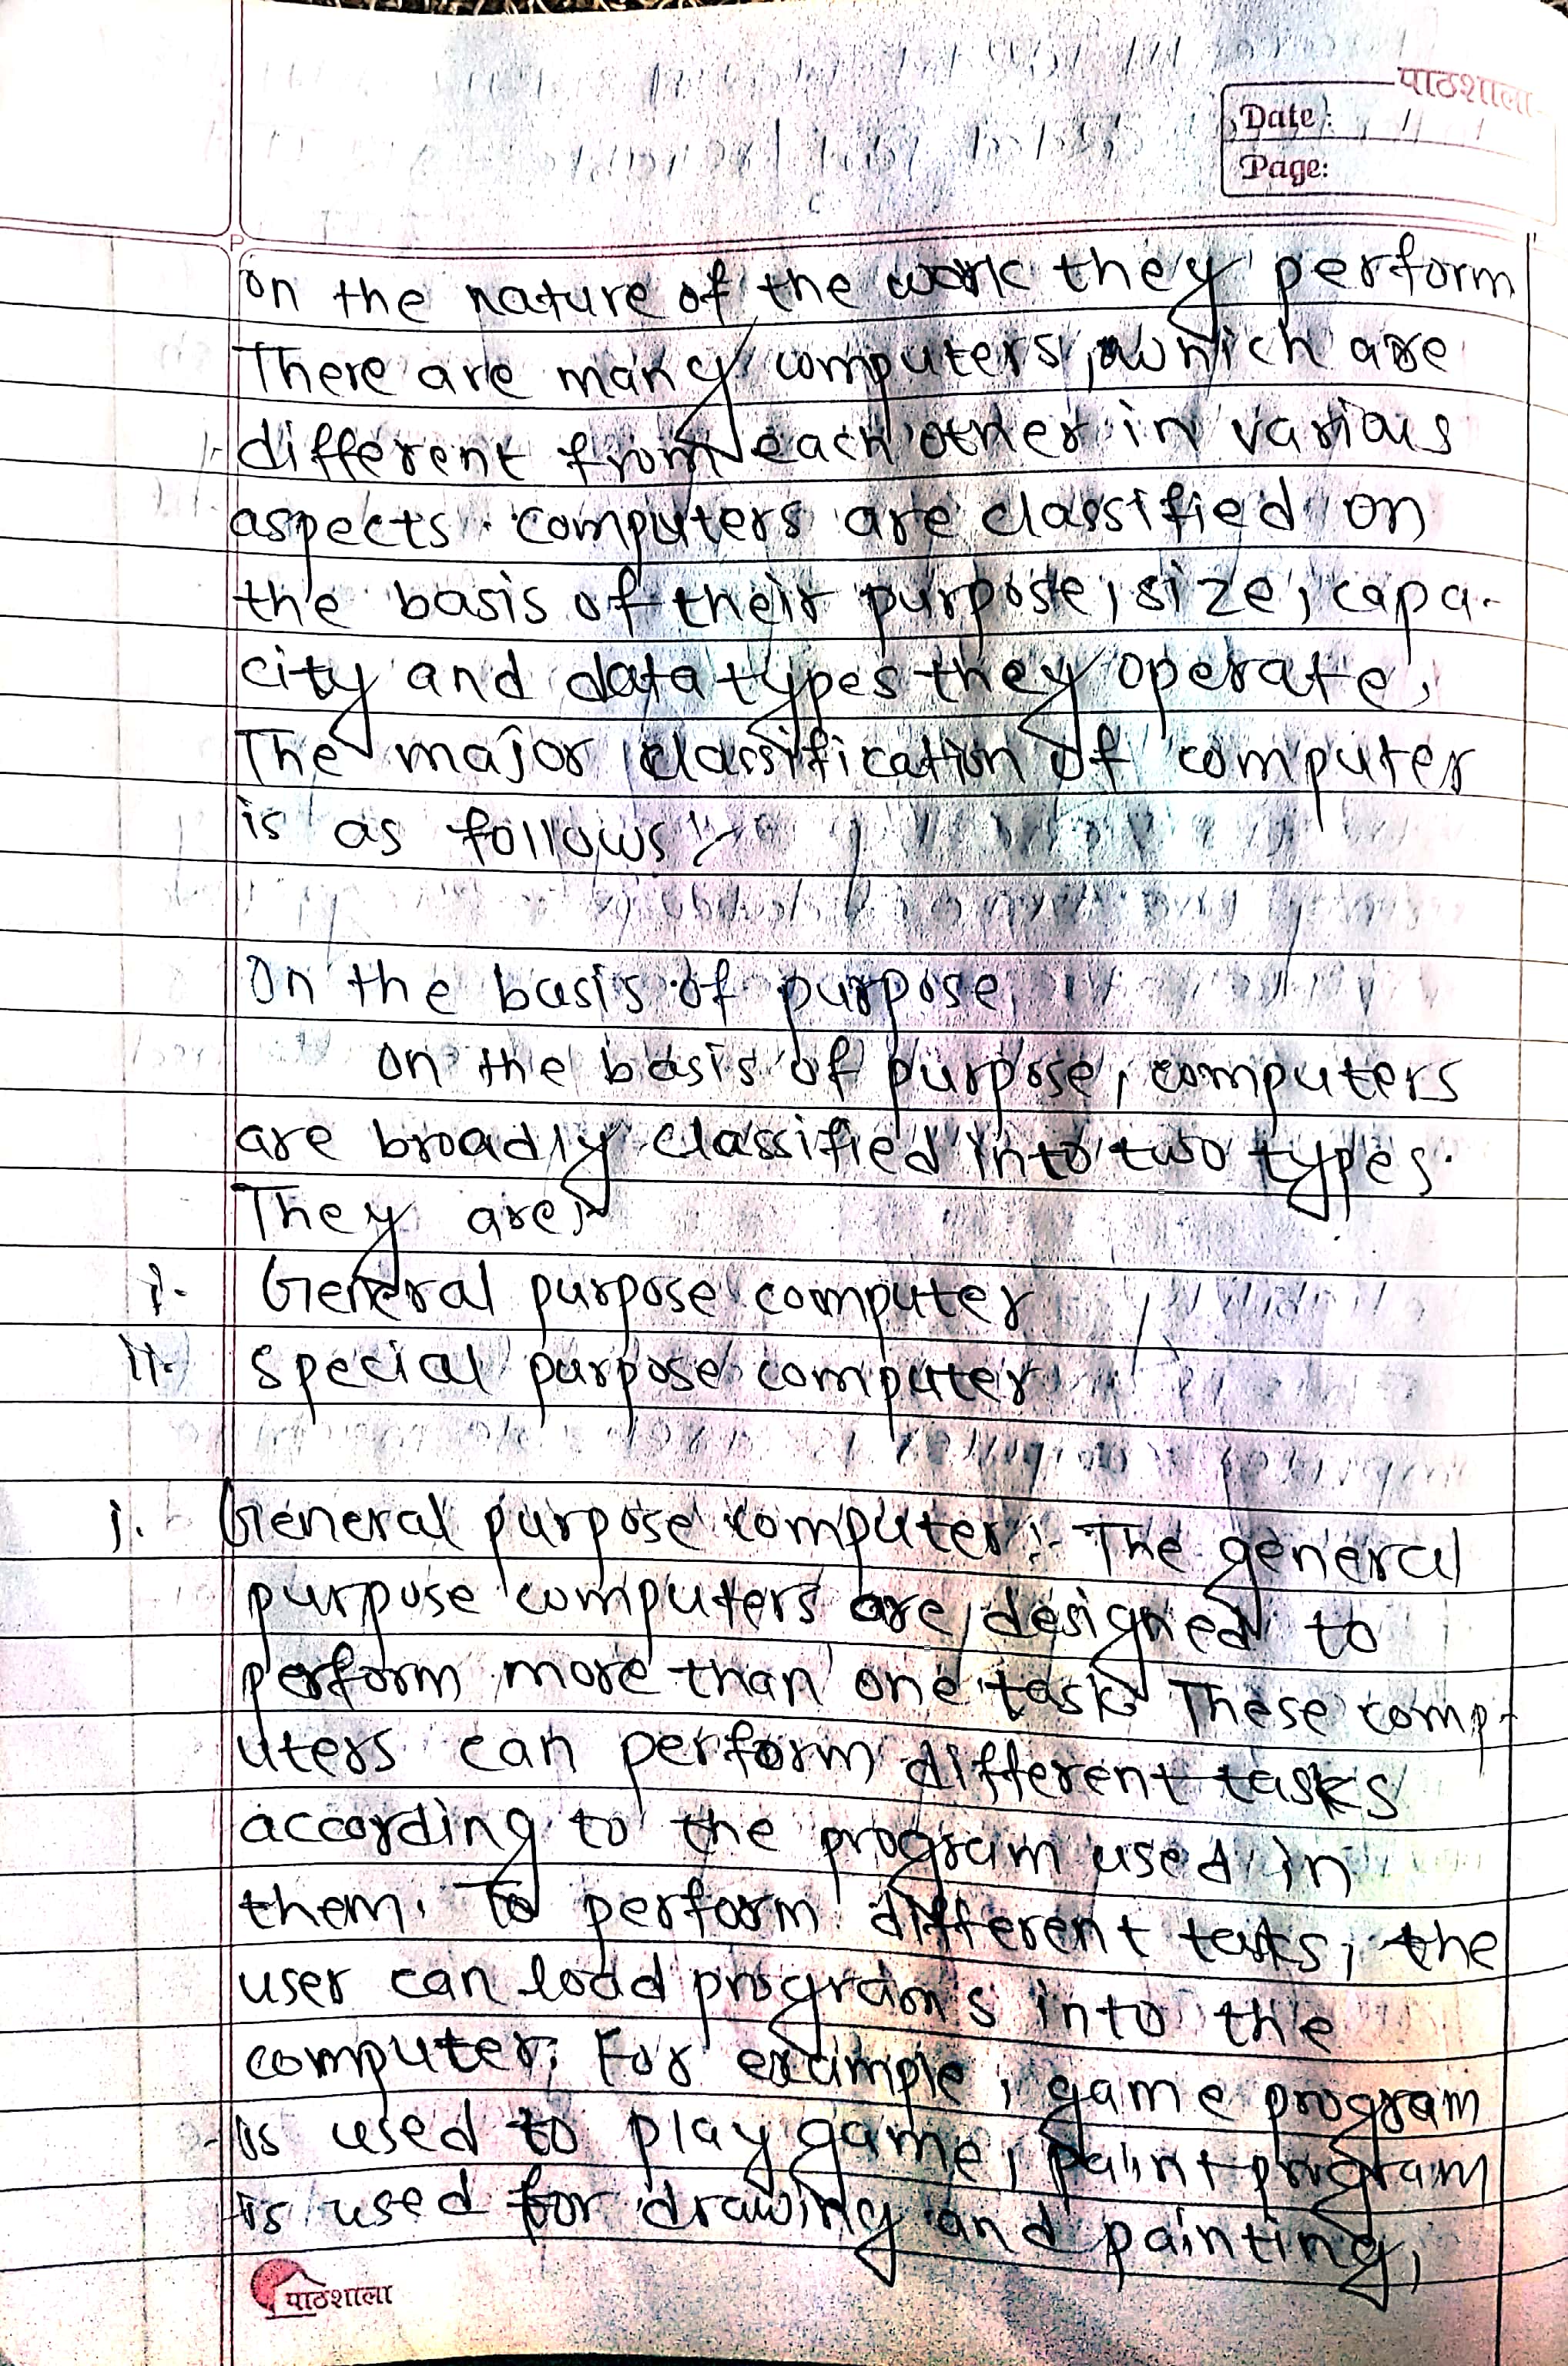 पाठशाला
Date: / /
Page:
on the nature of the work they perform
There are many computers, which are
different from each other in various
aspects. computers are classified on
the basis of their purpose, size, capa-
city and data types they operate.
The major classification of computer
is as follows:-
On the basis of purpose
on the basis of purpose, computers
are broadly classified into two types.
They are:-
i. General purpose computer
ii. special purpose computer
i. General purpose computer:- The general
purpose computers are designed to
perform more than one task. These comp-
uters can perform different tasks
according to the program used in
them. To perform different tasks, the
user can load programs into the
computer. For example, game program
is used to play game, paint program
is used for drawing and painting,
पाठशाला